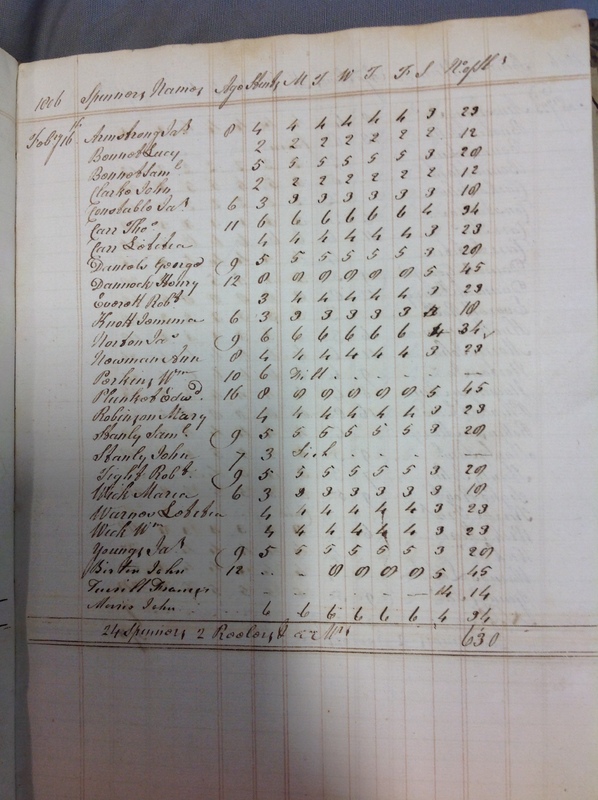 1806 Spinners Names Age Stents M T W T F S No of Sks
Feb 7 16th Armstrong Jas 8 4 4 4 4 4 4 3 23
Bennet Lucy 2 2 2 2 2 2 2 12
Bennet Saml 5 5 5 5 5 5 3 28
Clarke John 2 2 2 2 2 2 2 12
Constable Jas 6 3 3 3 3 3 3 3 18
Carr Thos 11 6 6 6 6 6 6 4 34
Carr Letitia 4 4 4 4 4 4 3 23
Daniels George 9 5 5 5 5 5 5 3 28
Dannock Henry 12 8 8 8 8 8 8 5 45
Everett Robt 3 4 4 4 4 4 3 23
Knott Jemima 6 3 3 3 3 3 3 3 18
Norton Jas 9 6 6 6 6 6 6 4 34
Newman Ann 8 4 4 4 4 4 4 3 23
Perkins Wm 10 6 - - - -
Plunket Edwd 16 8 8 8 8 8 8 5 45
Robinson Mary 4 4 4 4 4 4 3 23
Stanly Saml 9 5 5 5 5 5 5 3 28
Stanly John 7 3 Sick - - - -
Tight Robt 9 5 5 5 5 5 5 3 28
Week Maria 6 3 3 3 3 3 3 3 18
Warnes Letitia 4 4 4 4 4 4 3 23
Week Wm 4 4 4 4 4 4 3 23
Youngs Jas 9 5 5 5 5 5 5 3 28
John 12 - - 8 8 8 8 5 45
- - - - - - 14 14
John 6 6 6 6 6 6 4 34
24 Spinners 2 Reelers 630